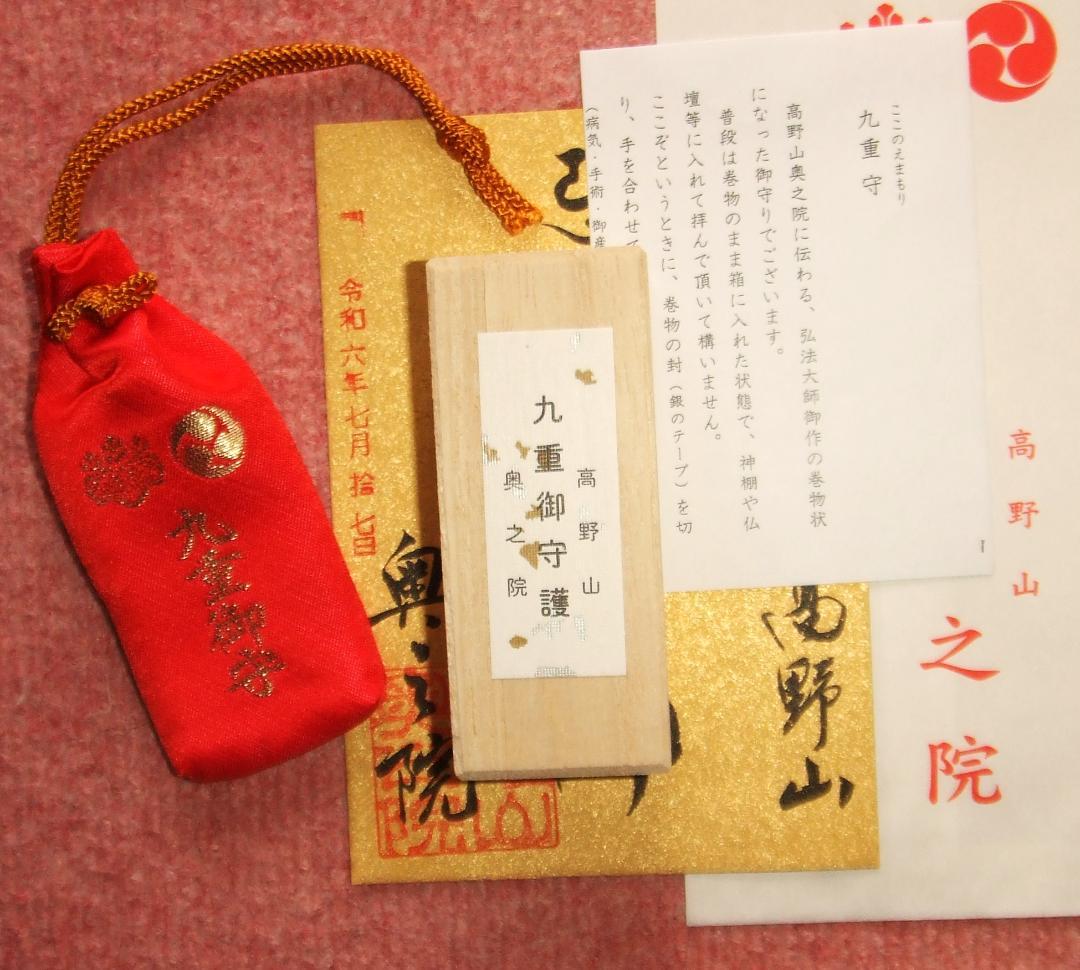 高野山
之院
ここのえまもり
九重守
高野山奥之院に伝わる、弘法大師御作の巻物状
になった御守りでございます。
普段は巻物のまま箱に入れた状態で、神棚や仏
壇等に入れて拝んで頂いて構いません。
ここぞというときに、巻物の封（銀のテープ）を切
り、手を合わせて
（病気・手術・御産
高野山
奥之院
令和六年七月拾七日
高野山
九重御守護
奥之院
九重御守